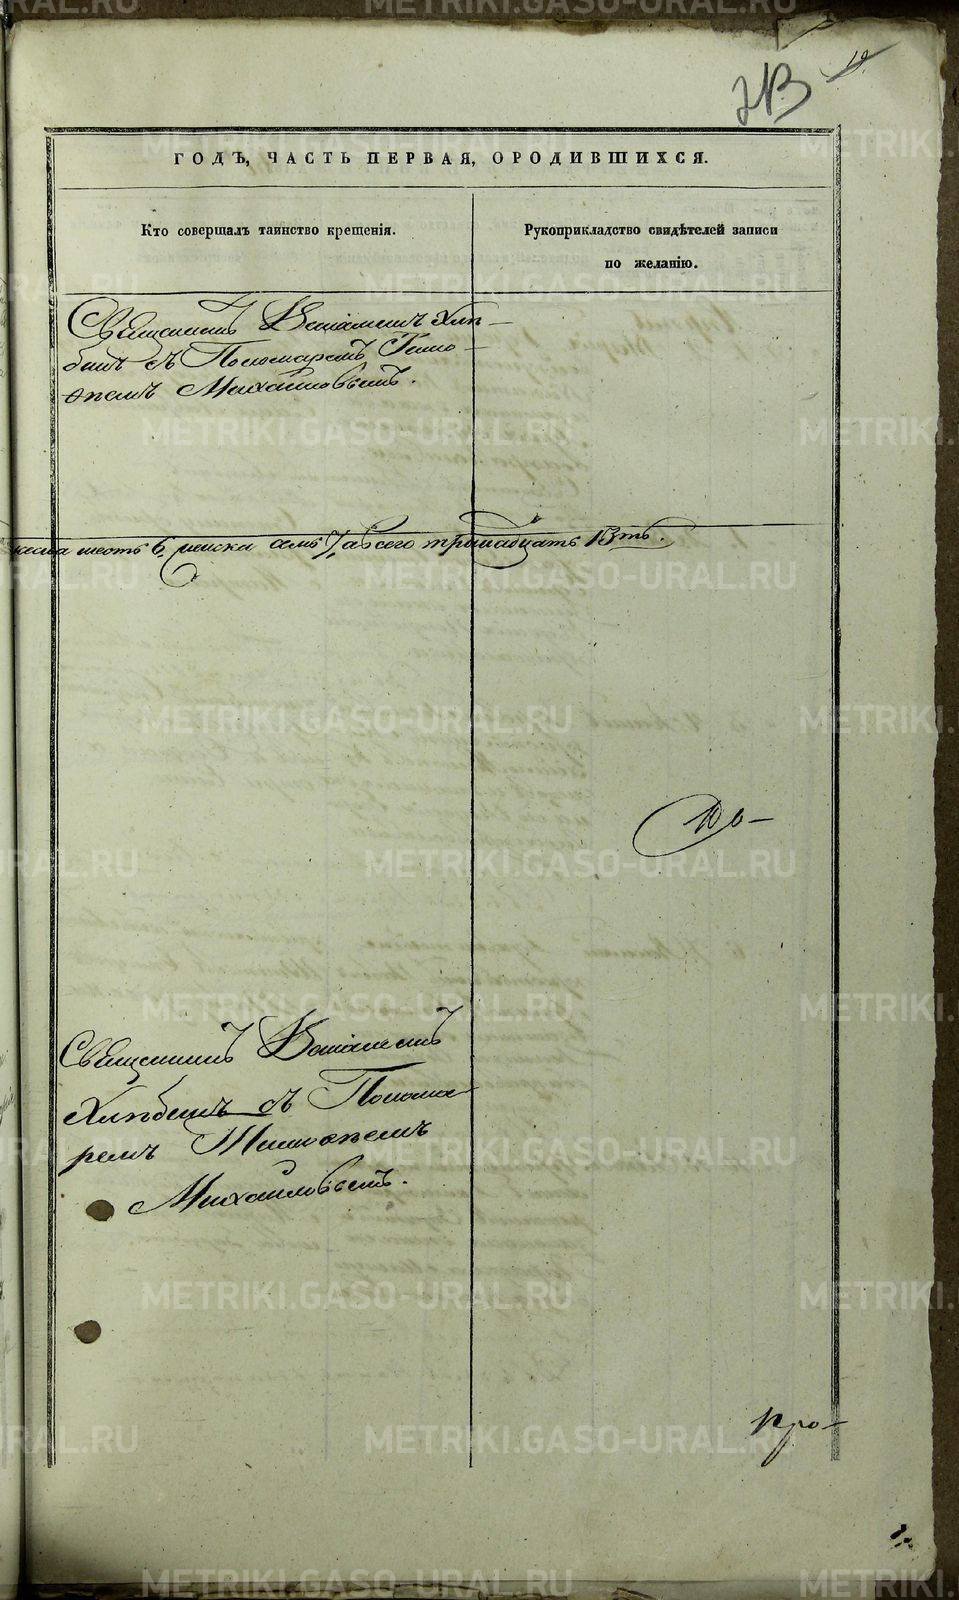 19.
ГОДЪ, ЧАСТЬ ПЕРВАЯ, О РОДИВШИХСЯ.
Кто совершалъ таинство крещенія.
Рукоприкладство свидѣтелей записи
по желанію.
Священникъ Веніаминъ Хлѣ-
бинъ съ Пономаремъ Тимо-
ѳеемъ Михайловымъ.
шесть 6, женска семь 7, а всего тринадцать 13ть.
Священникъ Веніаминъ
Хлѣбинъ съ Понома-
ремъ Тимоѳеемъ
Михайловымъ.
При-
METRIKI.GASO-URAL.RU